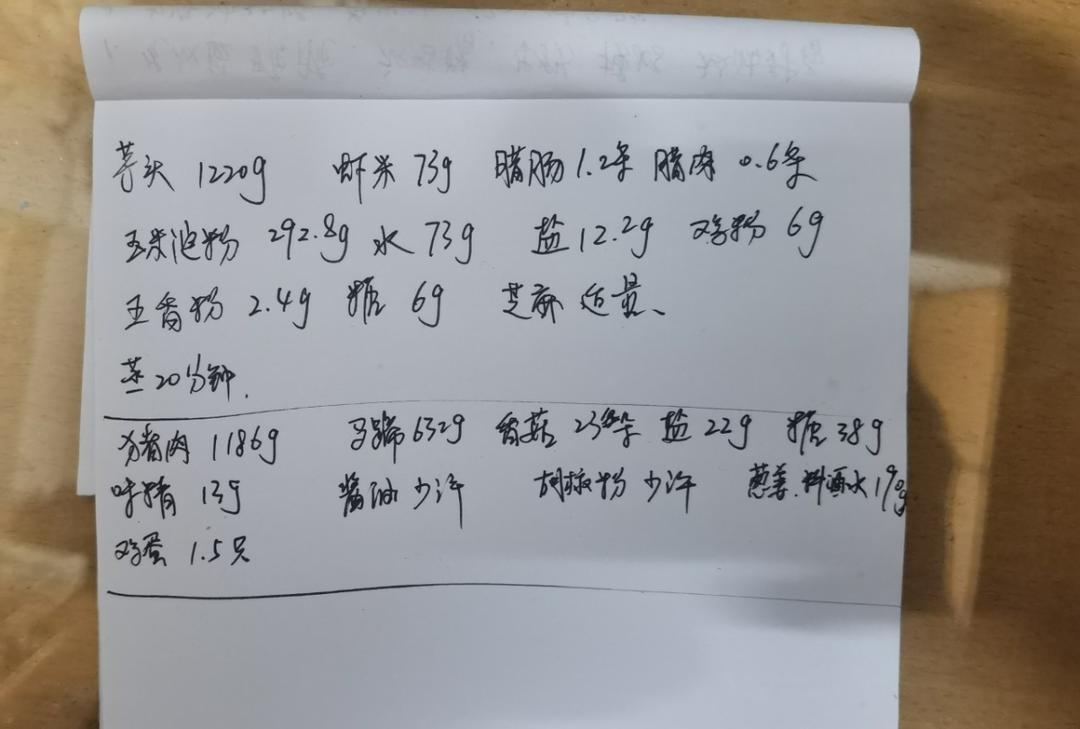 芋头 1220g 虾米 73g 腊肠 1.2条 腊肉 0.6条
玉米淀粉 292.8g 水 73g 盐 12.2g 鸡粉 6g
五香粉 2.4g 糖 6g 芝麻 适量、
蒸20分钟.
猪肉 1186g 马蹄 632g 香菇 23朵 盐 22g 糖 38g
味精 13g 酱油 少许 胡椒粉 少许 葱姜.料酒水 190g
鸡蛋 1.5只